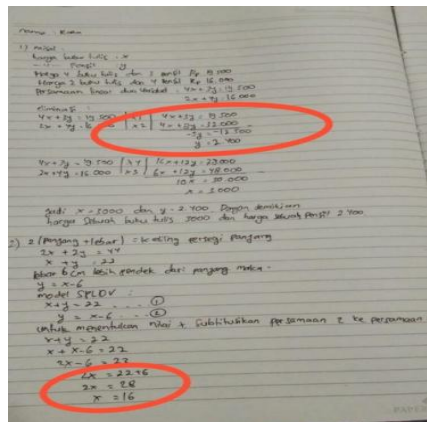 1) misal :
harga buku tulis = x
Pensil y
Harga 4 buku tulis dan 3 pensil Rp 19.500
Harga 2 buku tulis dan 4 pensil Rp 16.000
Persamaan linear dua variabel : 4x + 3y = 19.500
2x + 4y = 16.000
eliminasi :
4x + 3y = 19.500 | x1 | 4x + 3y = 19.500
2x + 4y = 16.000 | x2 | 4x + 8y = 32.000
-5y = -12.500
y = 2.400
4x + 3y = 19.500 | x4 | 16x + 12y =
2x + 4y = 16.000 | x3 | 6x + 12y = 48.000
10x = 30.000
x = 3.000
Jadi x = 3000 dan y = 2.400. Dengan demikian
harga sebuah buku tulis 3000 dan harga sebuah Pensil 2400
2) 2 (Panjang + lebar) = keliling persegi panjang
2x + 2y = 44
x + y = 22
lebar 6 cm lebih pendek dari panjang maka
y = x - 6
model SPLDV :
x + y = 22 ..... ①
y = x - 6 ..... ②
untuk menentukan nilai x Subtitusikan persamaan 2 ke persamaan
x + y = 22
x + x - 6 = 22
2x - 6 = 22
2x = 22 + 6
2x = 28
x = 16
PAPER